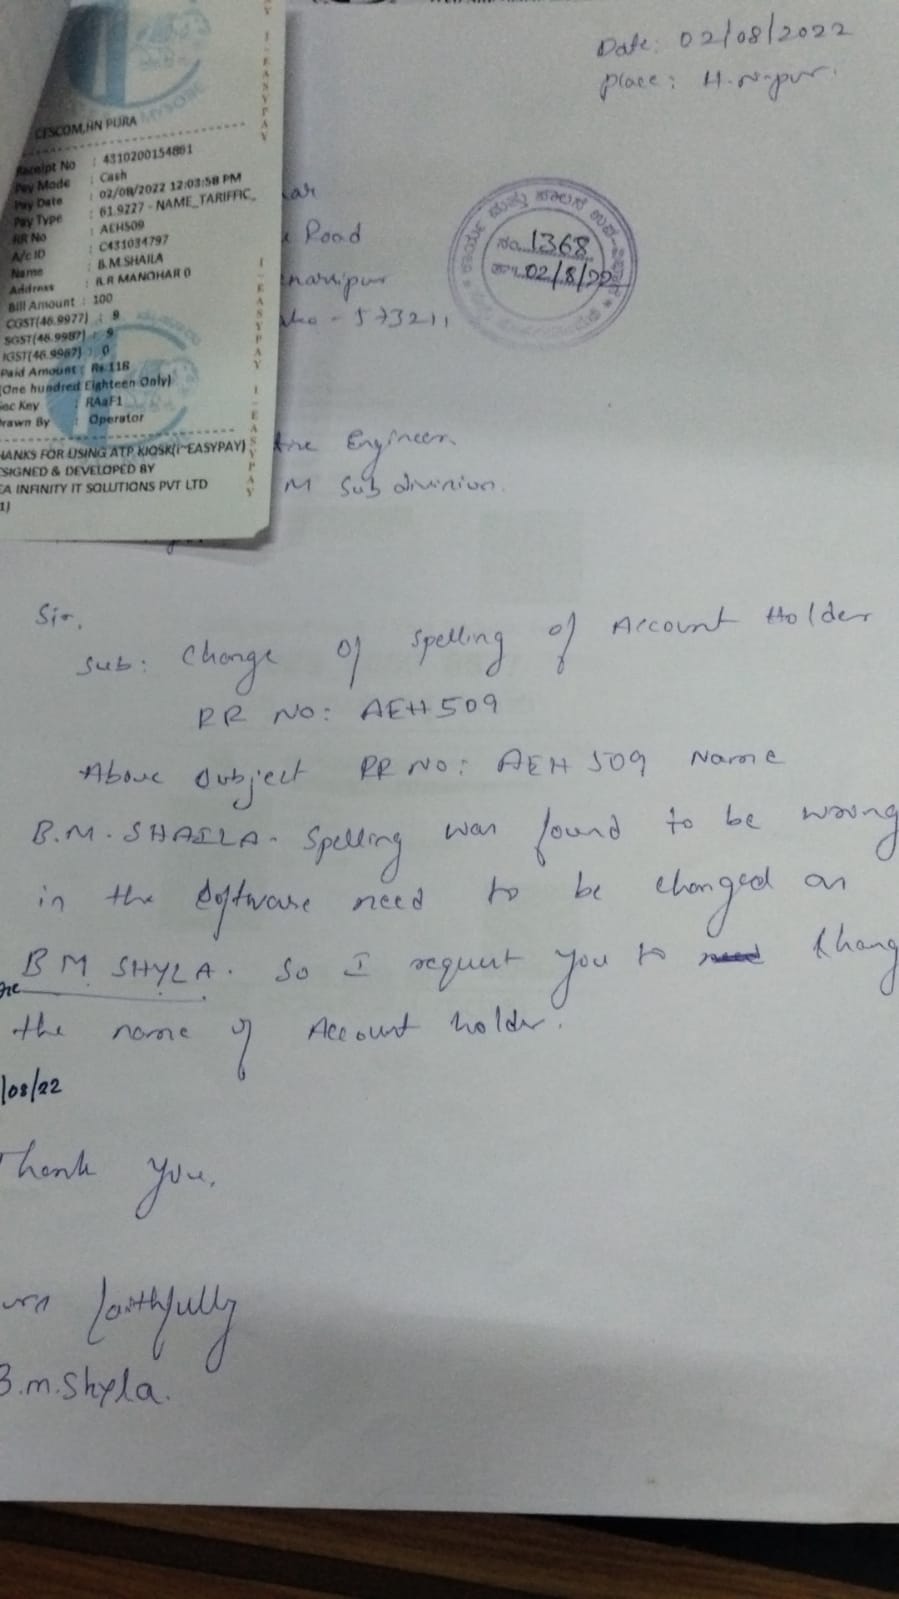 Date: 02/08/2022
Place: H.N-pur.
CESCOM,HN PURA
Receipt No : 4310200154861
Pay Mode : Cash
Pay Date : 02/08/2022 12:03:58 PM
Pay Type : 61.9227 - NAME_TARIFFIC_
RR No : AEH509
A/c ID : C431034797
Name : B.M.SHAILA
Address : B.R MANOHAR 0
Bill Amount : 100
CGST(46.9977) : 9
SGST(46.9987) : 9
IGST(46.9967) : 0
Paid Amount : Rs.118
(One hundred Eighteen Only)
Key : RAaF1
Drawn By : Operator
HANKS FOR USING ATP KIOSK(I-EASYPAY)
SIGNED & DEVELOPED BY
EA INFINITY IT SOLUTIONS PVT LTD
1)
I-EASYPAY I-EASYPAY I-EASYPAY
ar
Road
narsipur
573211
ನಂ. 1368
02/8/22
Engineer
M Sub division.
Sir,
Sub: Change of Spelling of Account Holder
RR NO: AEH509
Above Subject RR NO: AEH 509 Name
B.M. SHAILA. Spelling was found to be wrong
in the Software need to be changed as
B M SHYLA. So I request you to need Chang
the name of Account holder.
/08/22
Thank You,
urs faithfully
B.m.Shyla.